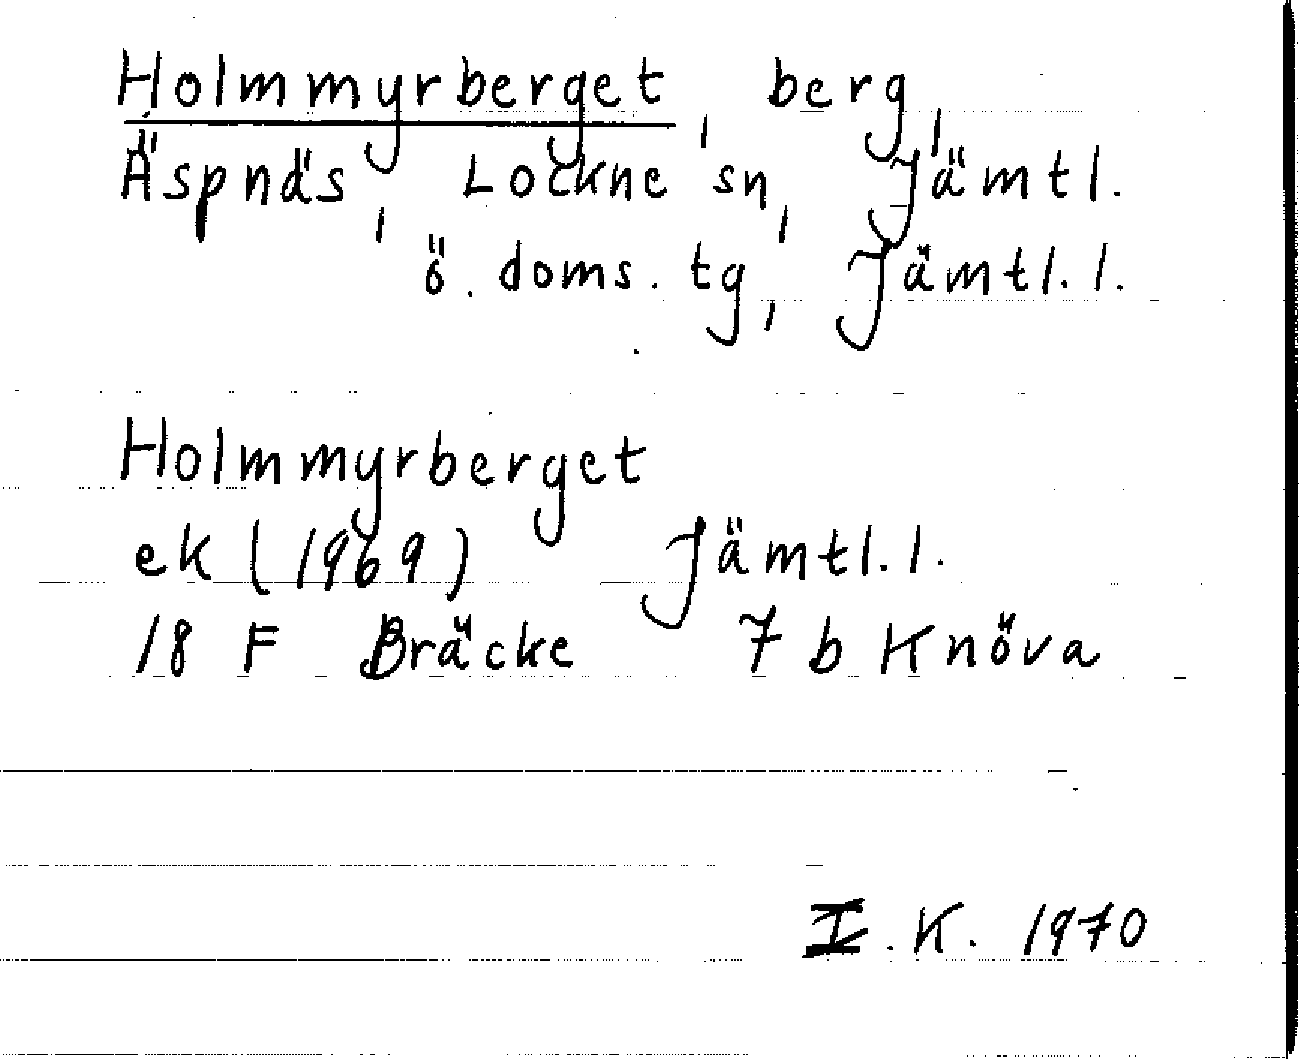 Holmmyrberget, berg,
Äspnäs, Lockne sn, Jämtl.
ö. doms. tg, Jämtl. l.
Holmmyrberget
ek (1969) Jämtl. l.
18 F Bräcke 7 b Knöva
I. K. 1970